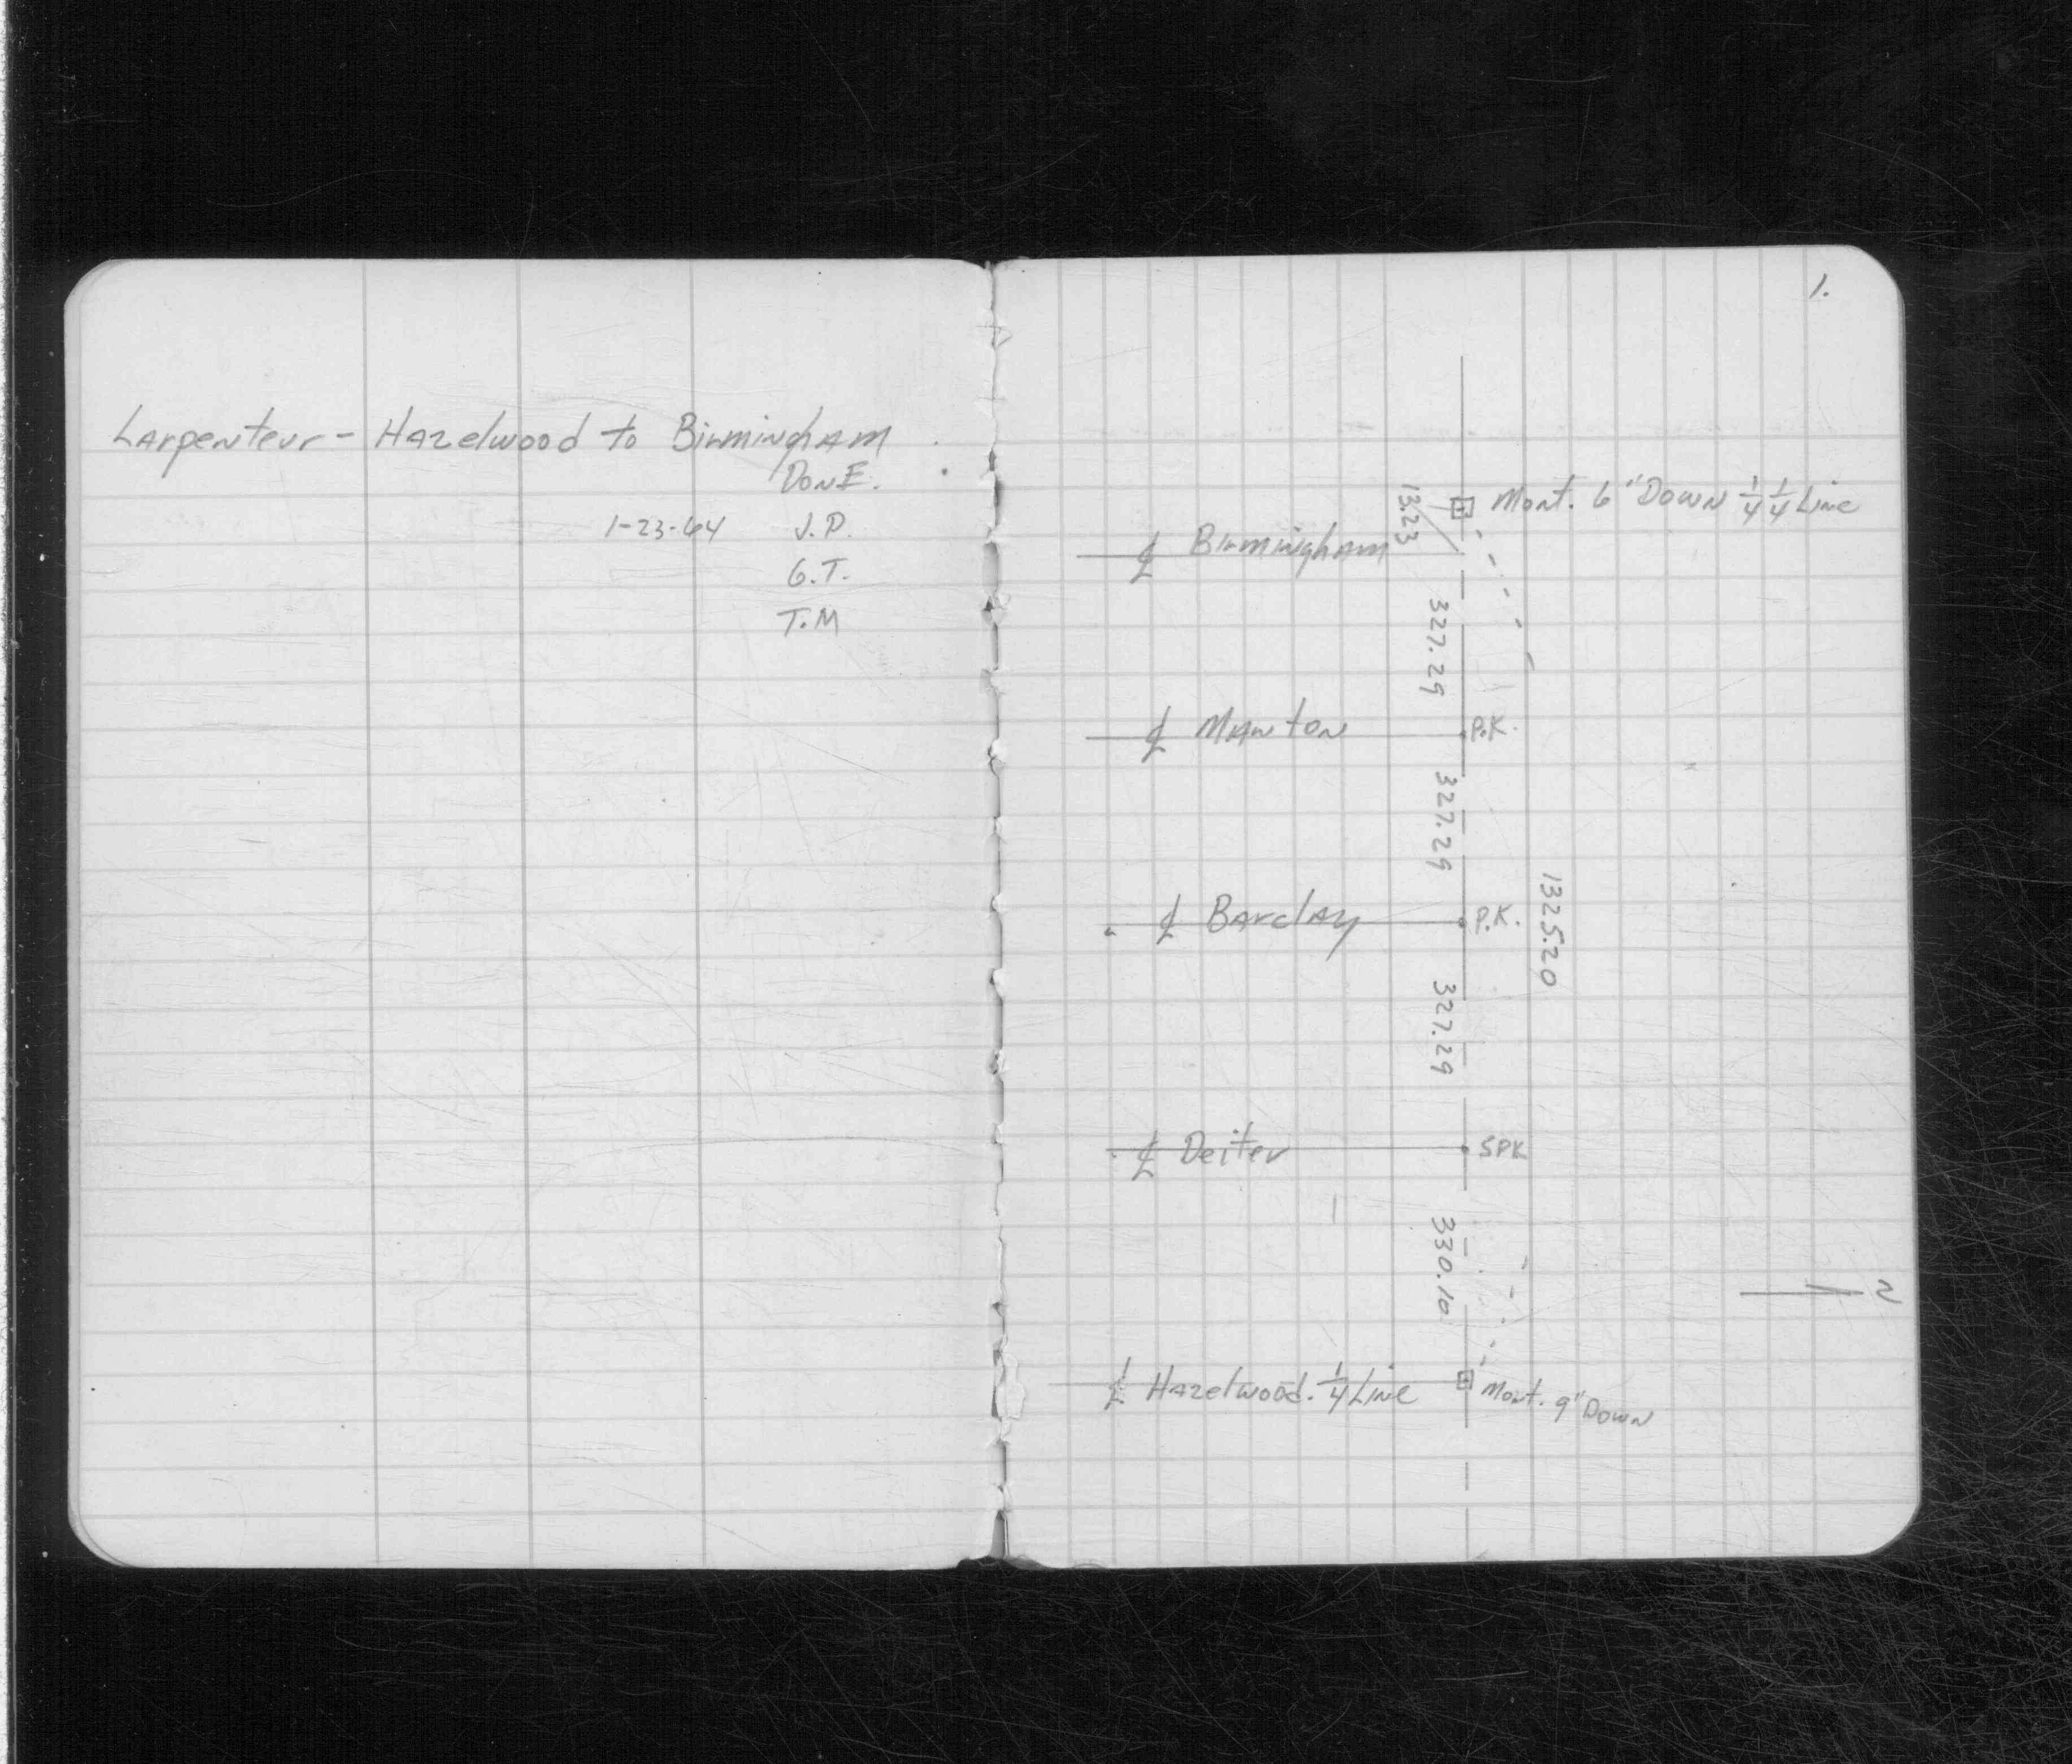 Larpenteur - Hazelwood to Birmingham
DonE.
1-23-64 J.P.
G.T.
T.M
1.
Mont. 6" Down 1/4 1/4 Line
13.23
℄ Birmingham
327.29
℄ Manton P.K.
327.29
℄ Barclay P.K.
1325.20
327.29
℄ Deiter SPK
330.10
N
℄ Hazelwood. 1/4 Line Mont. 9" Down